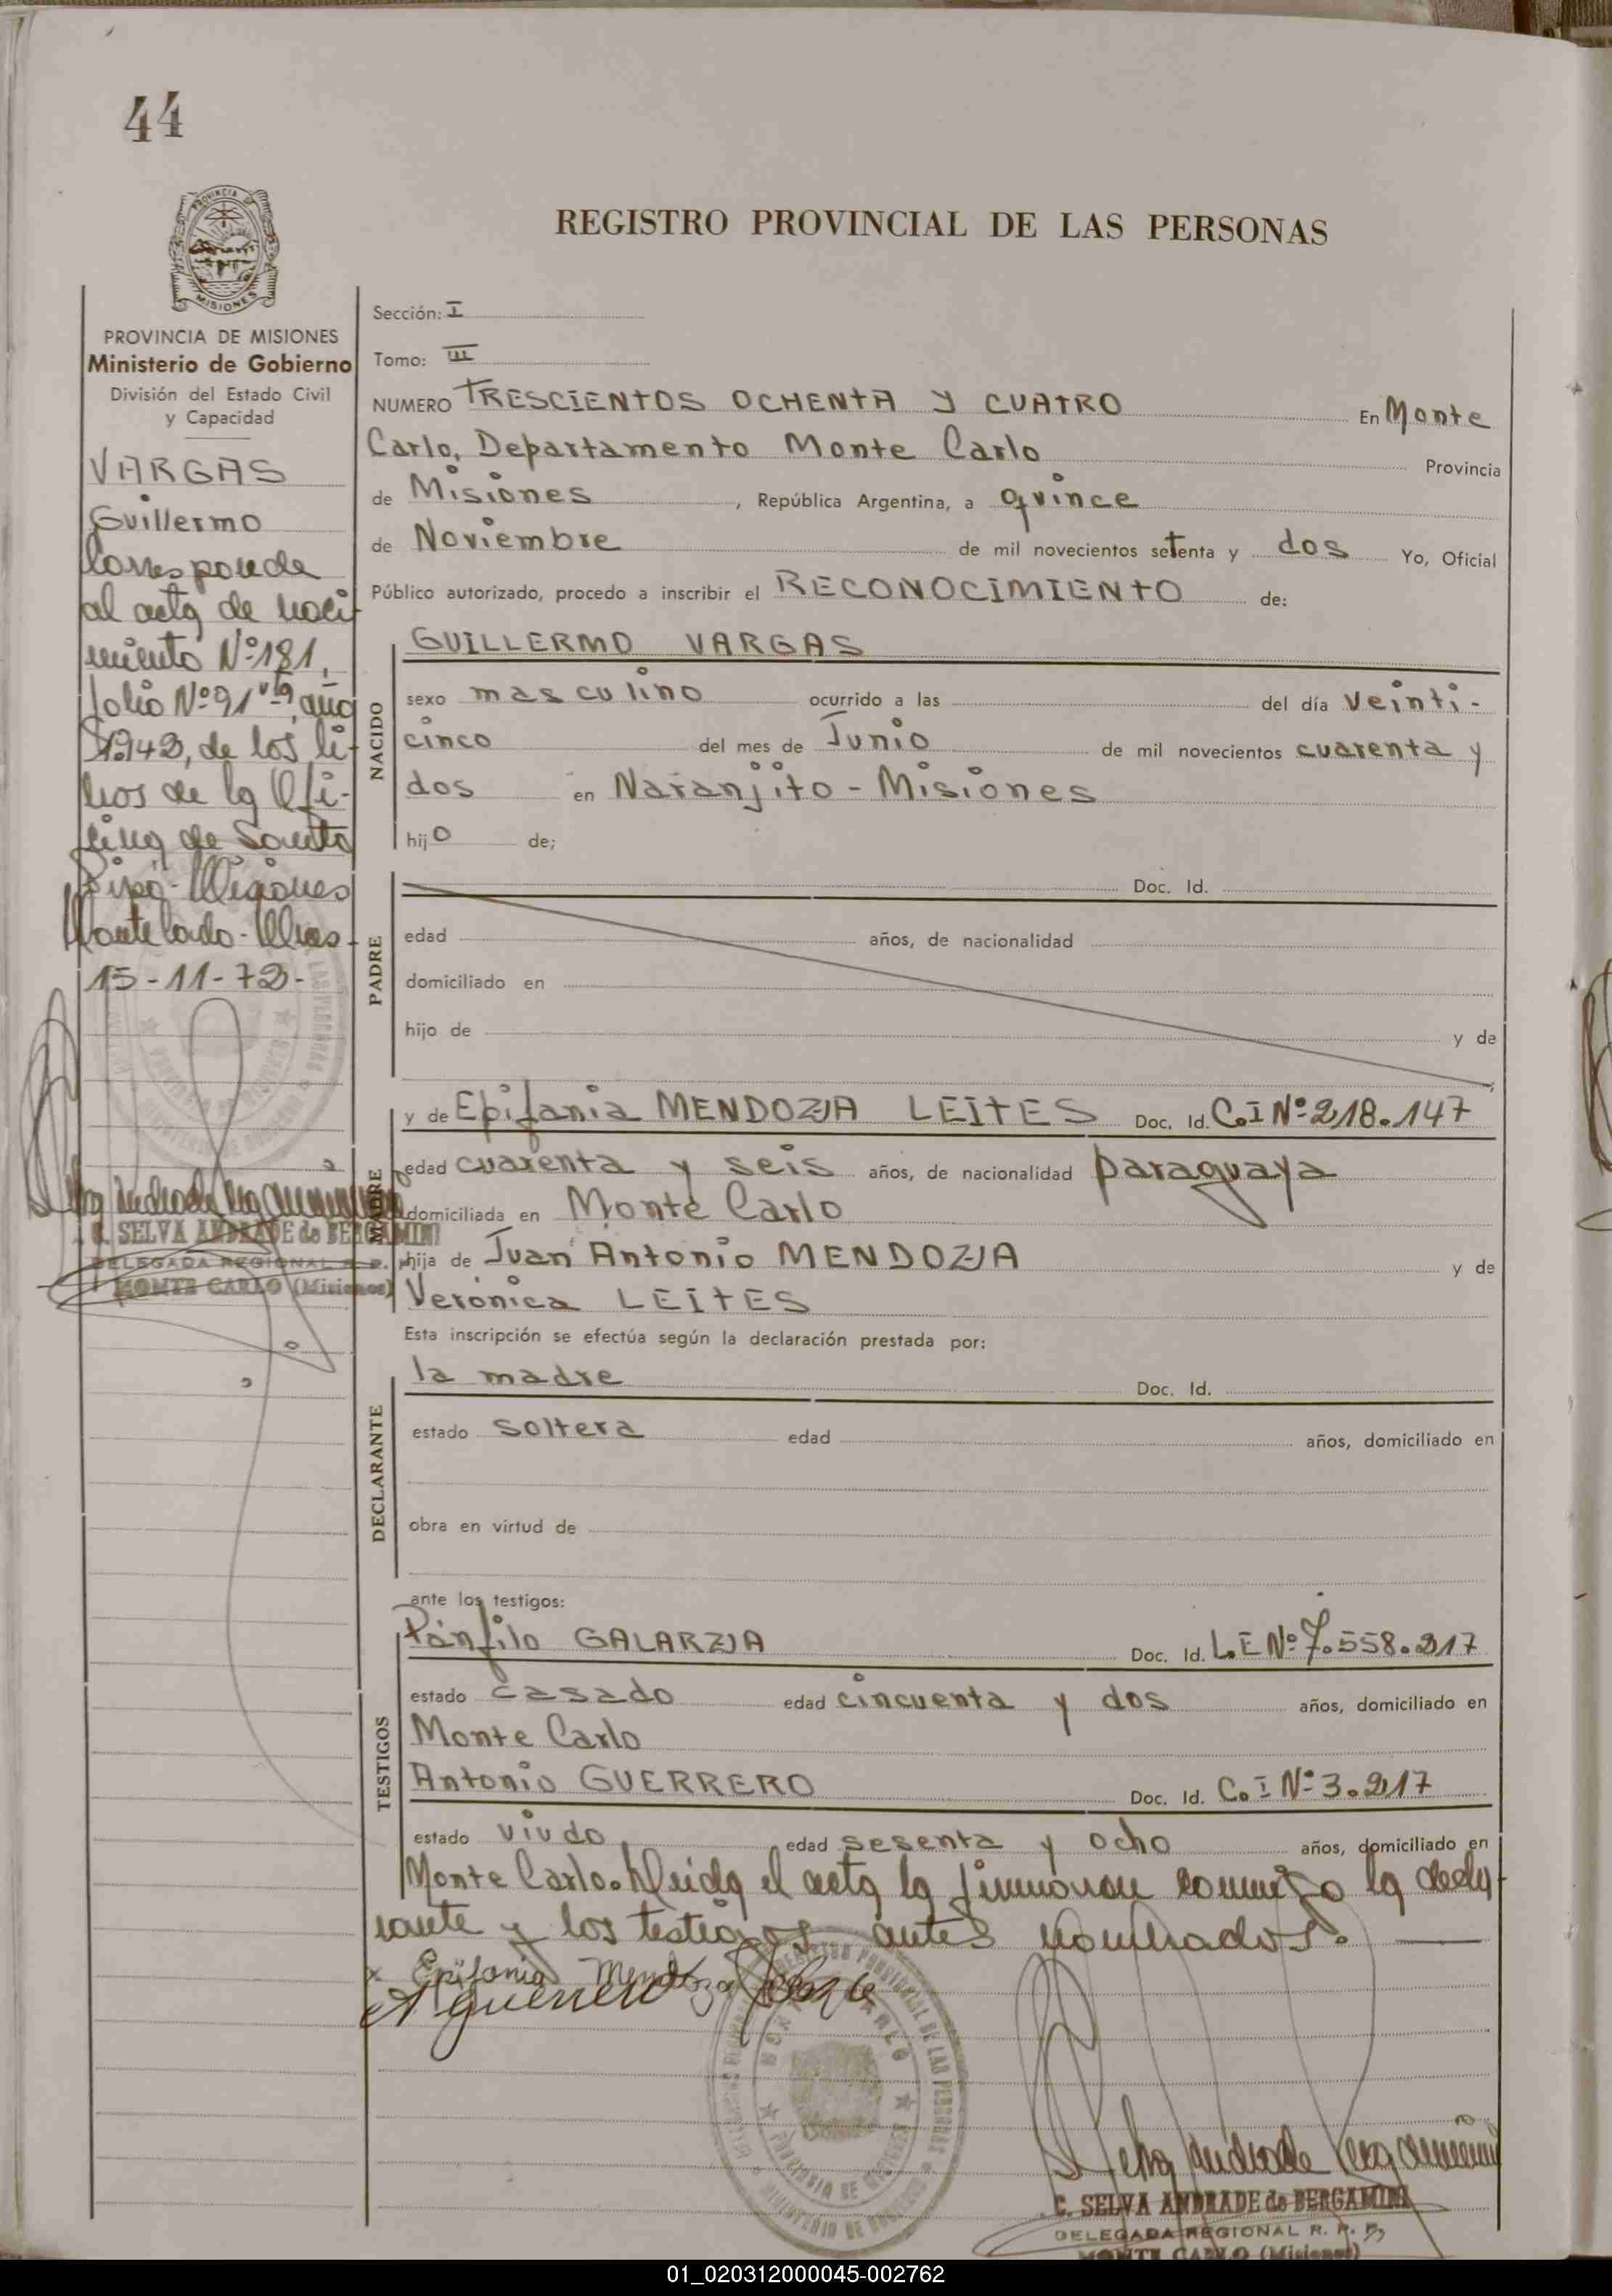 44
REGISTRO PROVINCIAL DE LAS PERSONAS
PROVINCIA DE MISIONES
Ministerio de Gobierno
División del Estado Civil
y Capacidad
VARGAS
Guillermo
Corresponde
al acta de naci
miento Nº 181,
folio Nº 91 vta, año
1942, de los li-
bros de la Ofi-
cina de Santo
Pipó - Misiones
Monte Carlo - Mnes -
15-11-72-
C. SELVA ANDRADE de BERGAMINI
DELEGADA REGIONAL R. P.
MONTE CARLO (Misiones)
Sección: I
Tomo: III
NUMERO TRESCIENTOS OCHENTA Y CUATRO En Monte
Carlo, Departamento Monte Carlo Provincia
de Misiones, República Argentina, a quince
de Noviembre de mil novecientos setenta y dos Yo, Oficial
Público autorizado, procedo a inscribir el RECONOCIMIENTO de:
NACIDO
GUILLERMO VARGAS
sexo masculino ocurrido a las del día veinti-
cinco del mes de Junio de mil novecientos cuarenta y
dos en Naranjito - Misiones
hijo de;
PADRE
Doc. Id.
edad años, de nacionalidad
domiciliado en
hijo de y de
MADRE
y de Epifania MENDOZA LEITES Doc. Id. C.I Nº 218.147
edad cuarenta y seis años, de nacionalidad paraguaya
domiciliada en Monte Carlo
hija de Juan Antonio MENDOZA y de
Verónica LEITES
Esta inscripción se efectúa según la declaración prestada por:
DECLARANTE
la madre Doc. Id.
estado soltera edad años, domiciliado en
obra en virtud de
ante los testigos:
TESTIGOS
Pánfilo GALARZA Doc. Id. L.E Nº 7.558.217
estado casado edad cincuenta y dos años, domiciliado en
Monte Carlo
Antonio GUERRERO Doc. Id. C.I Nº 3.217
estado viudo edad sesenta y ocho años, domiciliado en
Monte Carlo. Leida el acta la firmaron conmigo la decla
rante y los testigos antes nombrados.
x Epifania Mendoza
A guerrero
C. SELVA ANDRADE de BERGAMINI
DELEGADA REGIONAL R. P. P.
MONTE CARLO (Misiones)
01_020312000045-002762